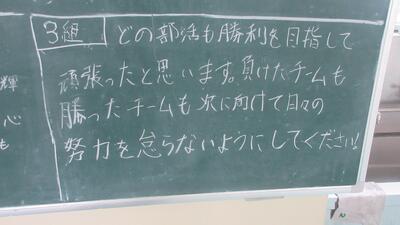 3組 どの部活も勝利を目指して
頑張ったと思います。負けたチームも
勝ったチームも次に向けて日々の
努力を怠らないようにしてください!
輝
心
も